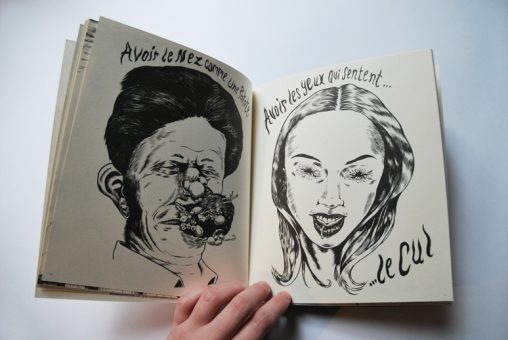 Avoir le Nez comme une
Avoir les yeux qui sentent...
...le CUL